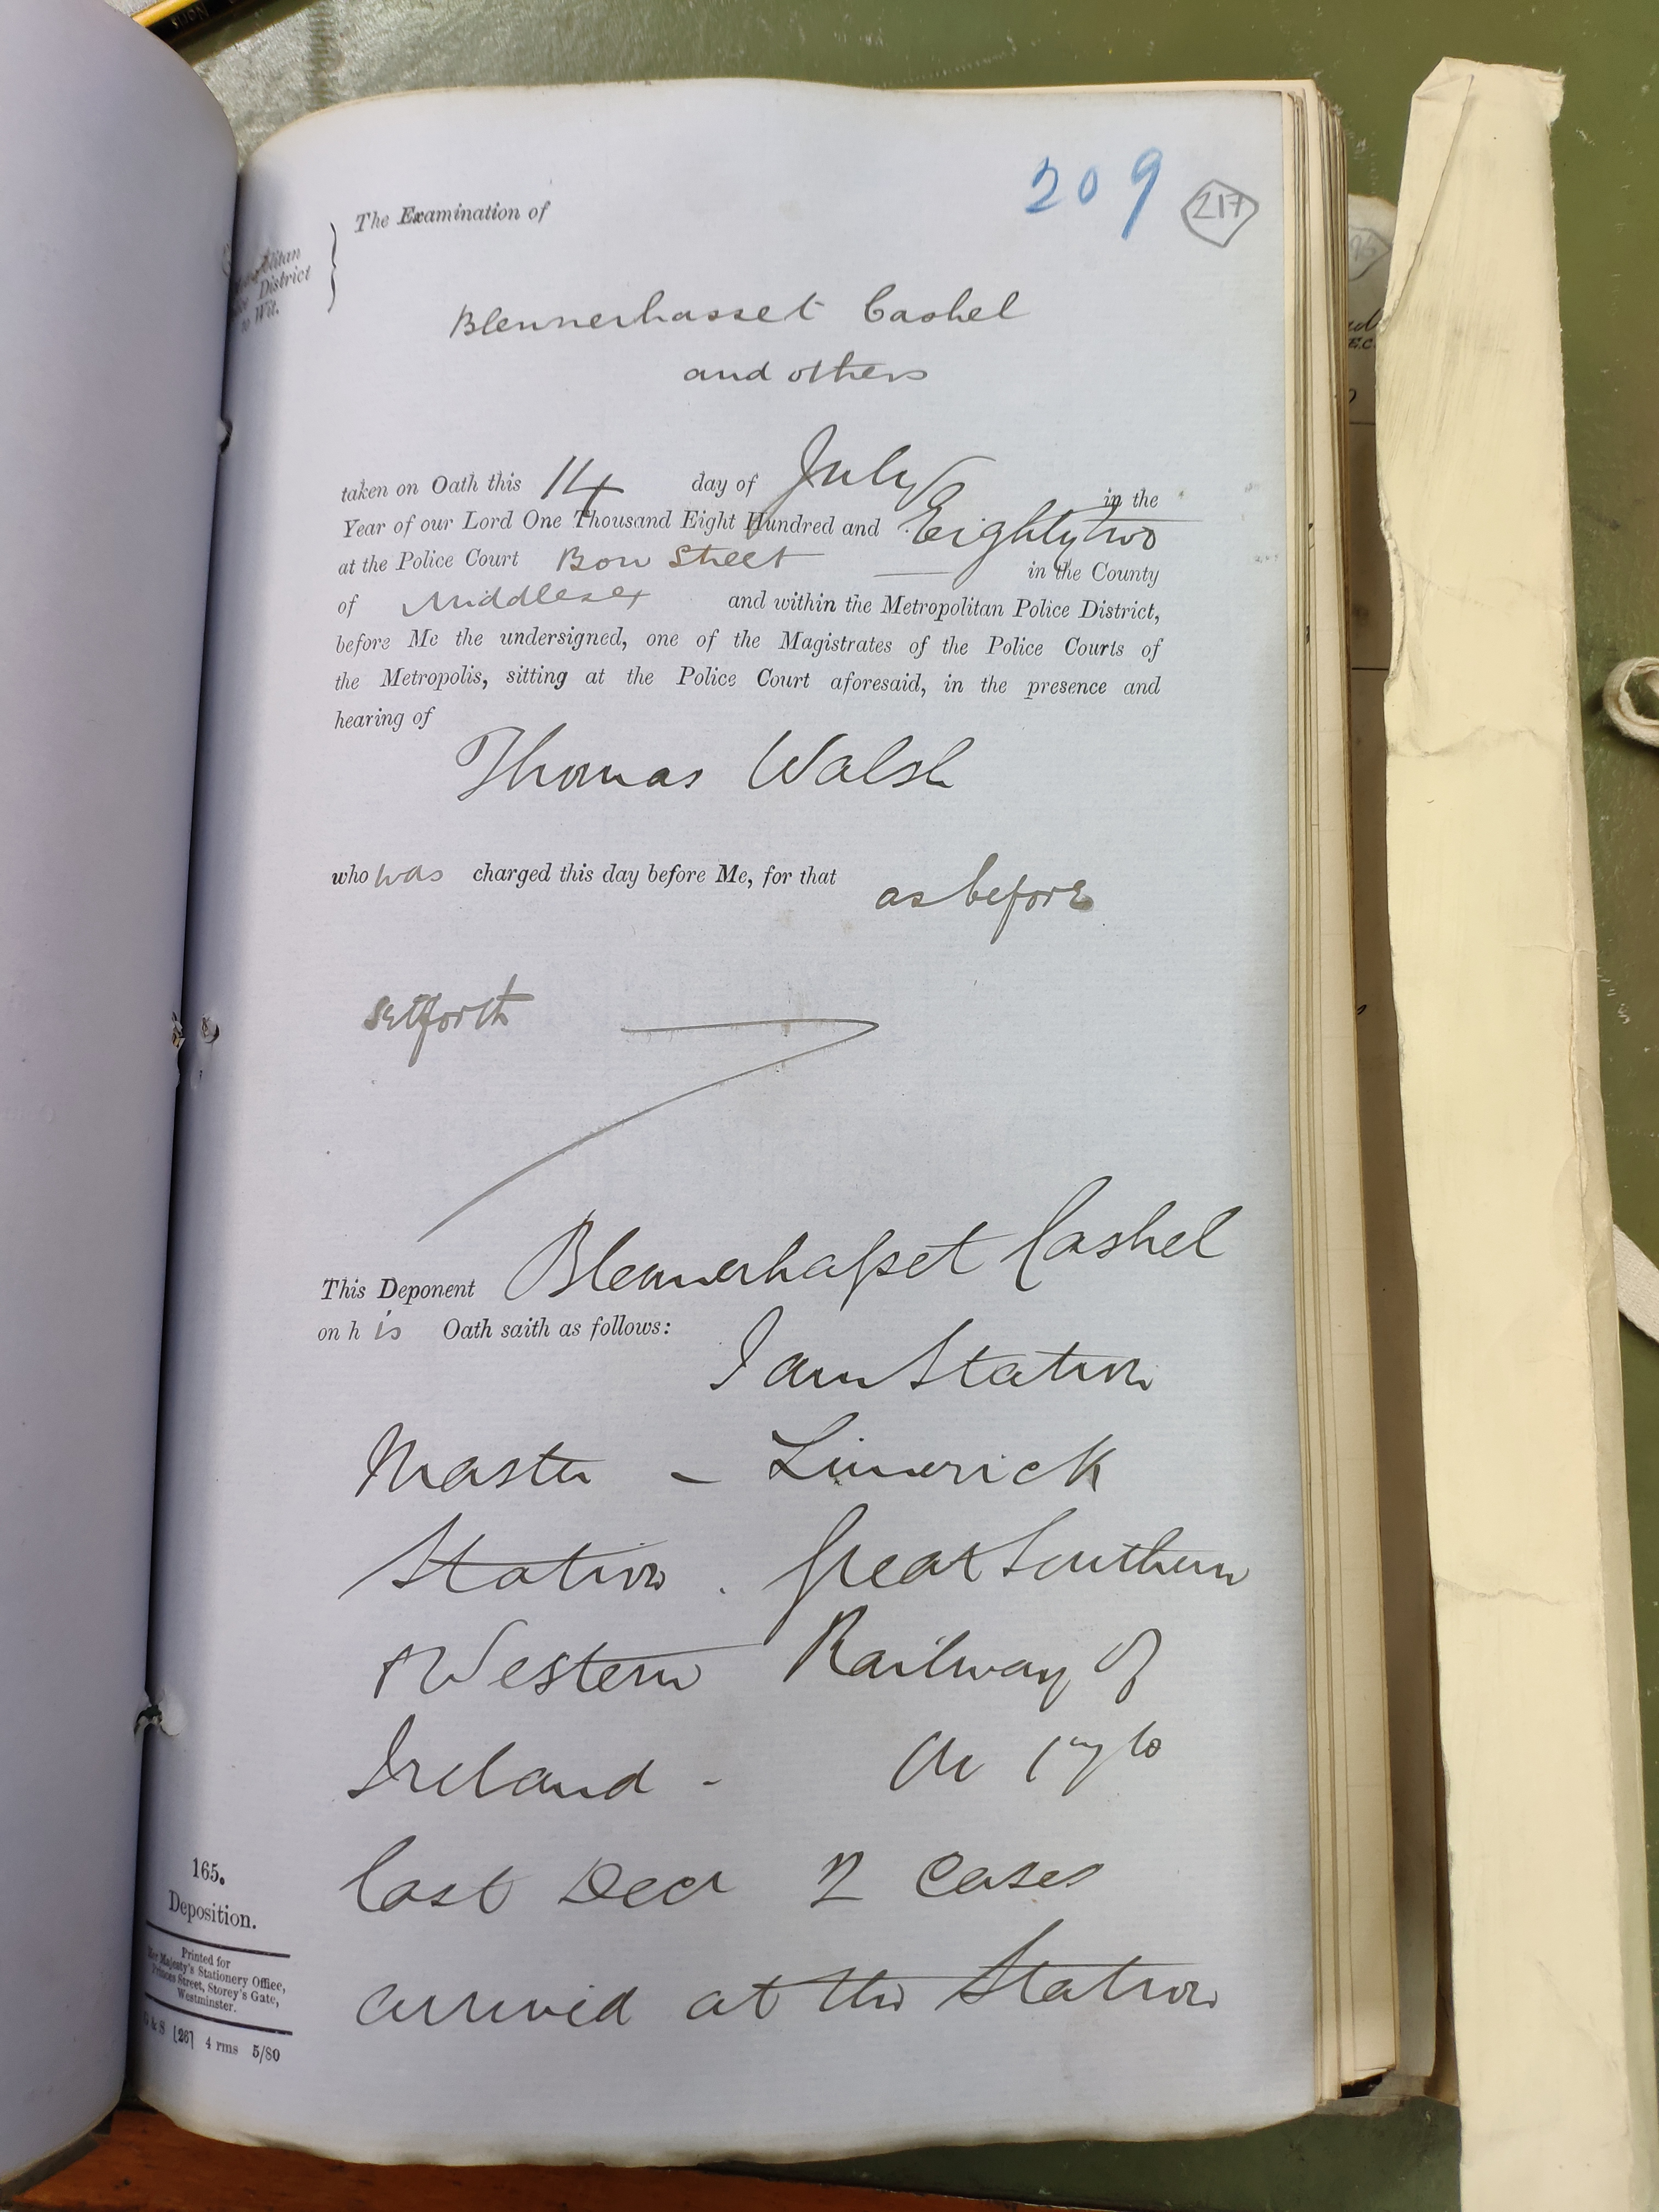 209
217
The Examination of
District
to Wit.
Blennerhasset Cashel
and others
taken on Oath this 14 day of July in the
Year of our Lord One Thousand Eight Hundred and Eighty two
at the Police Court Bow Street in the County
of Middlesex and within the Metropolitan Police District,
before Me the undersigned, one of the Magistrates of the Police Courts of
the Metropolis, sitting at the Police Court aforesaid, in the presence and
hearing of
Thomas Walsh
who was charged this day before Me, for that as before
setforth
This Deponent Blennerhasset Cashel
on his Oath saith as follows:
I am Station
Master - Limerick
Station . Great Southern
& Western Railway of
Ireland -
last Decr 2 Cases
arrived at the Station
165.
Deposition.
Printed for
Her Majesty's Stationery Office,
Princes Street, Storey's Gate,
Westminster.
& S [26] 4 rms 5/80